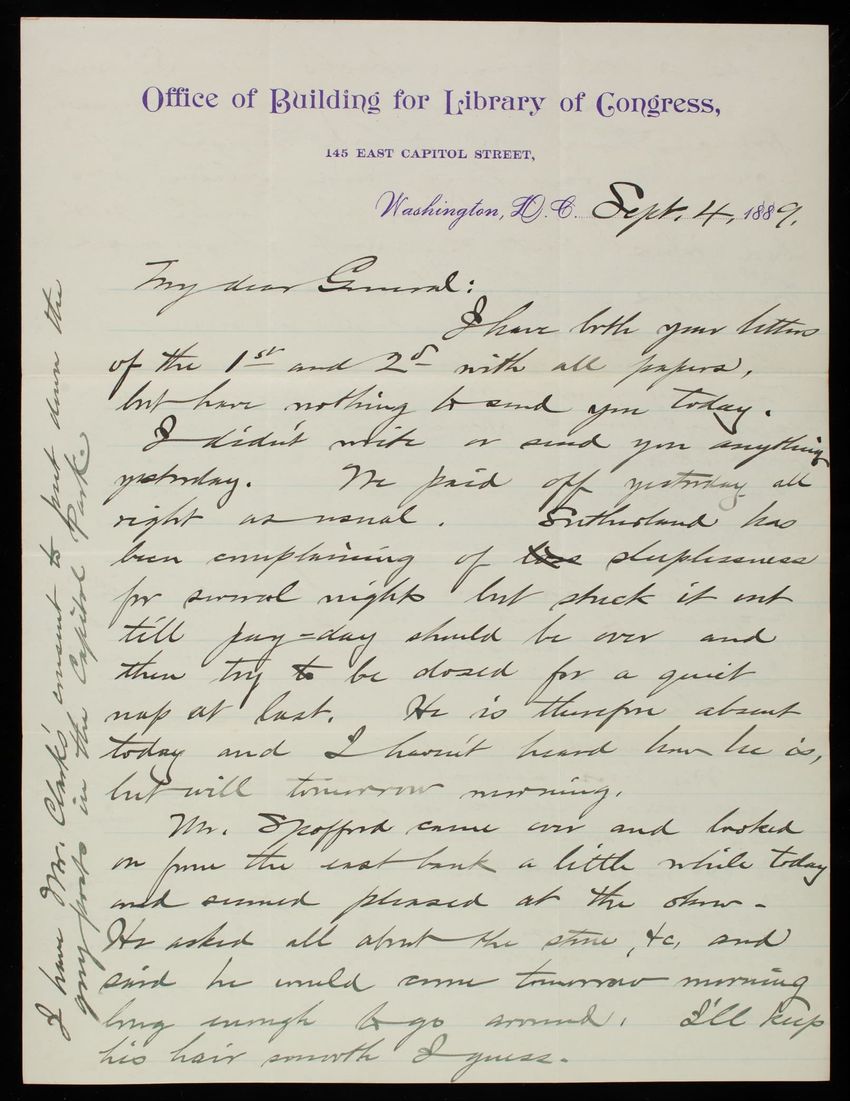 Office of Building for Library of Congress,
145 EAST CAPITOL STREET,
Washington, D.C. Sept. 4, 1889.
My dear General:
I have both your letters
of the 1st and 2d with all papers,
but have nothing to send you today.
I didn't write or send you anything
yesterday. We paid off yesterday all
right as usual. Sutherland has
been complaining of loss sleeplessness
for several nights but stuck it out
till pay-day should be over and
then try to be dosed for a quiet
nap at last. He is therefore absent
today and I haven't heard how he is,
but will tomorrow morning.
Mr. Spofford came over and looked
on from the east bank a little while today
and seemed pleased at the show.
He asked all about the stone, &c, and
said he would come tomorrow morning
long enough to go around. I'll keep
his hair smooth I guess.
I have Mr. Clark's consent to put down the
guy posts in the Capitol Park.